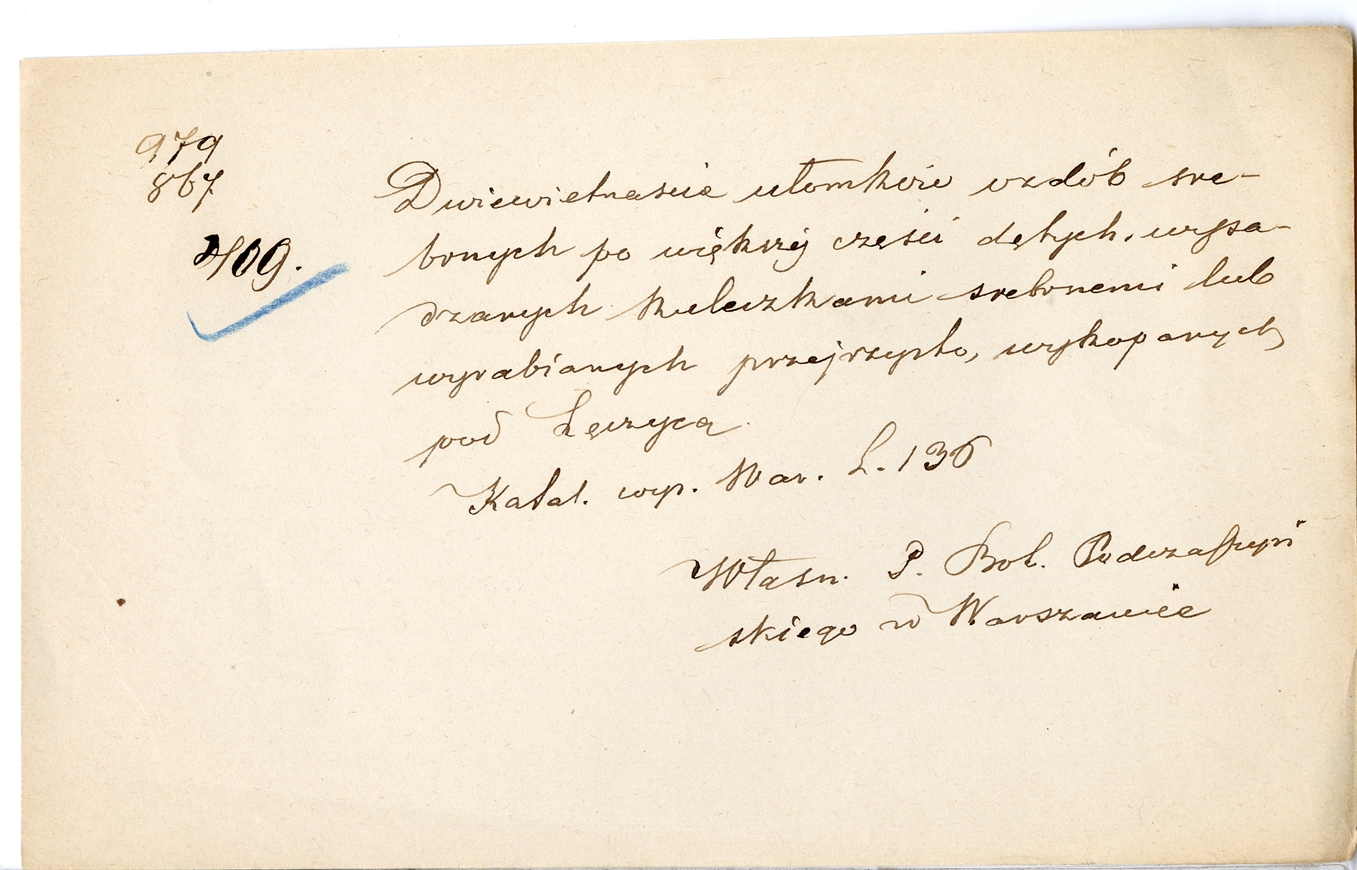 979
867
409.
Dwiewietnaście ułomków ozdób sre-
brnych po większéj części dętych, wysa-
dzanych kuleczkami srebrnemi lub
wyrabianych przejrzysto, wykopanych
pod Łęczycą.
Katal. wys. War. L. 136
Własn. P. Bol. Podczaszyń
skiego w Warszawie